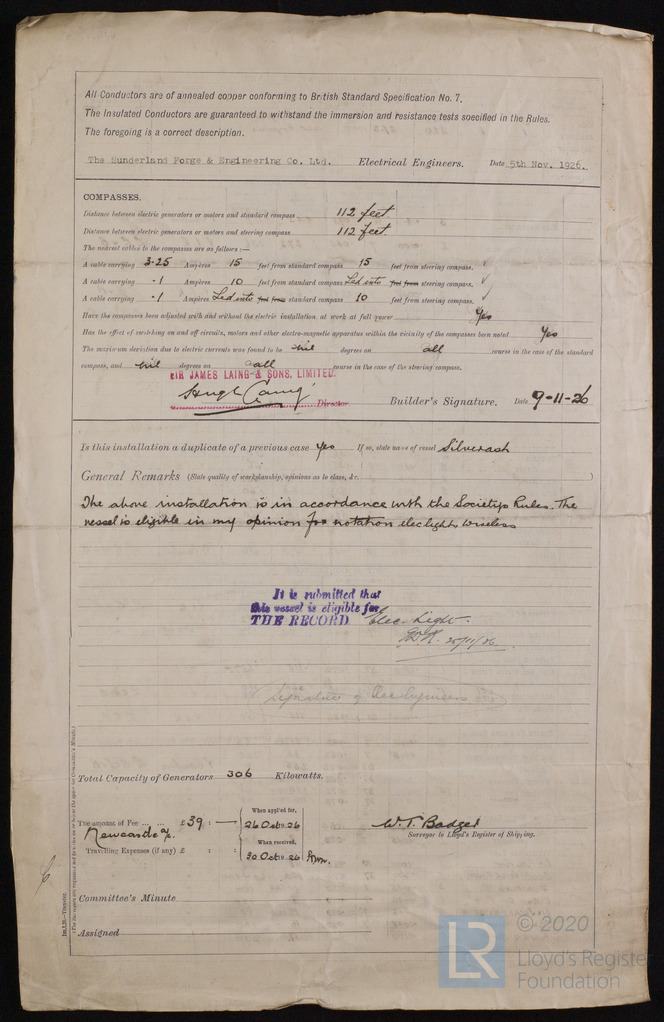 All Conductors are of annealed copper conforming to British Standard Specification No. 7.
The Insulated Conductors are guaranteed to withstand the immersion and resistance tests specified in the Rules.
The foregoing is a correct description.
The Sunderland Forge & Engineering Co. Ltd. Electrical Engineers. Date 5th Nov. 1926.
COMPASSES.
Distance between electric generators or motors and standard compass 112 feet
Distance between electric generators or motors and steering compass 112 feet
The nearest cables to the compasses are as follows:—
A cable carrying 3.25 Ampères 15 feet from standard compass 15 feet from steering compass.
A cable carrying .1 Ampères 10 feet from standard compass Led into feet from steering compass.
A cable carrying .1 Ampères Led into feet from standard compass 10 feet from steering compass.
Have the compasses been adjusted with and without the electric installation at work at full power Yes
Has the effect of switching on and off circuits, motors and other electro-magnetic apparatus within the vicinity of the compasses been noted Yes
The maximum deviation due to electric currents was found to be nil degrees on all course in the case of the standard
compass, and nil degrees on all course in the case of the steering compass.
SIR JAMES LAING & SONS, LIMITED.
Hugh Laing Director Builder's Signature. Date 9-11-26
Is this installation a duplicate of a previous case Yes If so, state name of vessel Silverash
General Remarks (State quality of workmanship, opinions as to class, &c. )
The above installation is in accordance with the Societys Rules. The
vessel is eligible in my opinion for notation elec light, Wireless
It is submitted that
this vessel is eligible for
THE RECORD Elec. Light.
25/11/26
Signature of Elec Engineers
Total Capacity of Generators 306 Kilowatts.
The amount of Fee ... ... £39 : — When applied for,
26 Oct 1926
Newcastle
When received,
Travelling Expenses (if any) £ : : 30 Oct 1926
W. T. Badger
Surveyor to Lloyd's Register of Shipping.
Committee's Minute
Assigned
Im.1.26.—Transfer.
LR
© 2020
Lloyd's Register
Foundation